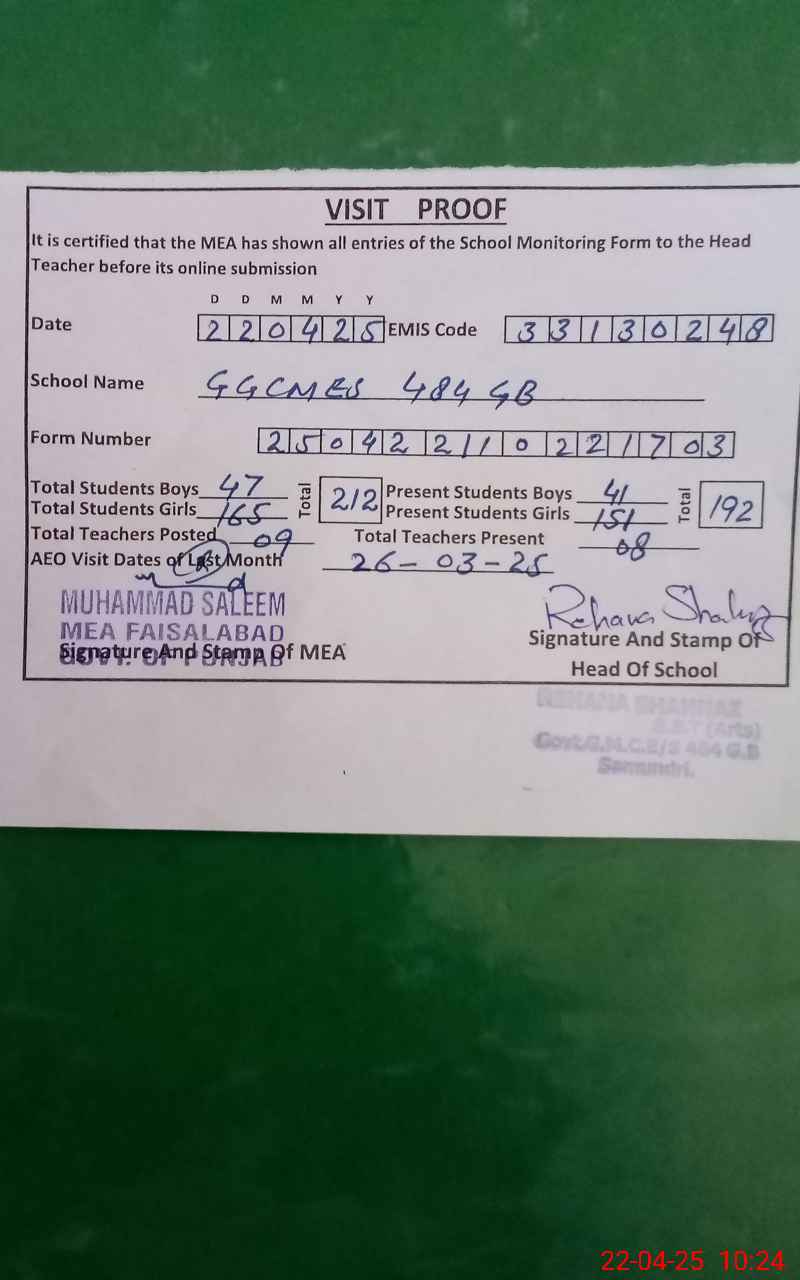 VISIT PROOF
It is certified that the MEA has shown all entries of the School Monitoring Form to the Head
Teacher before its online submission
D D M M Y Y
Date 220425 EMIS Code 33130248
School Name GGCMES 484 GB
Form Number 250422110221703
Total Students Boys 47 Total 212 Present Students Boys 41 Total 192
Total Students Girls 165 Present Students Girls 151
Total Teachers Posted 09 Total Teachers Present 08
AEO Visit Dates of Last Month 26-03-25
MUHAMMAD SALEEM
MEA FAISALABAD
GOVT. OF PUNJAB
Signature And Stamp Of MEA
Rehana Shahnaz
Signature And Stamp Of
Head Of School
REHANA SHAHNAZ
S.S.T (Arts)
Govt.G.M.C.E/S 484 G.B
Samundri.
22-04-25 10:24